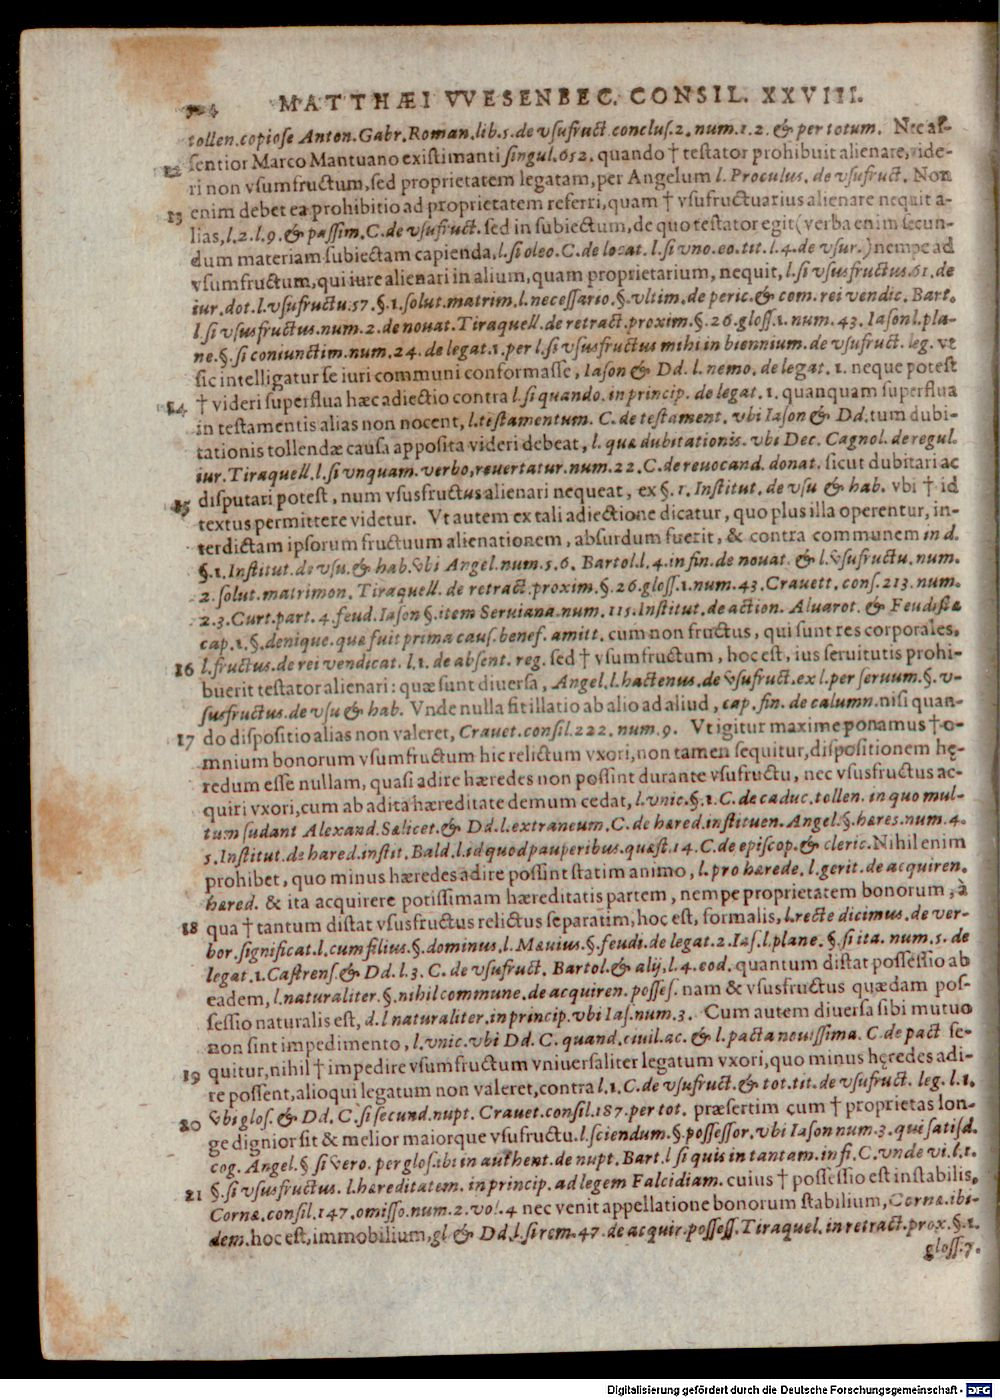 MATTHÆI VVESENBEC. CONSIL. XXVIII.
tollen. copiose Anton. Gabr. Roman. lib. 5. de vsufruct. conclus. 2. num. 1. 2. & per totum. Nec as-
12 sentior Marco Mantuano existimanti singul. 652. quando † testator prohibuit alienare, vide-
ri non vsumfructum, sed proprietatem legatam, per Angelum l. Proculus. de vsufruct. Non
13 enim debet ea prohibitio ad proprietatem referri, quam † vsufructuarius alienare nequit a-
lias, l. 2. l. 9. & passim. C. de vsufruct. sed in subiectum, de quo testator egit (verba enim secun-
dum materiam subiectam capienda, l. si oleo. C. de locat. l. si vno. eo. tit. l. 4. de vsur.) nempe ad
vsumfructum, qui iure alienari in alium, quam proprietarium, nequit, l. si vsusfructus. 61. de
iur. dot. l. vsufructu. 57. §. 1. solut. matrim. l. necessario. §. vltim. de peric. & com. rei vendic. Bart.
l. si vsusfructus. num. 2. de nouat. Tiraquell. de retract. proxim. §. 26. gloss. 1. num. 43. Iason l. pla-
ne. §. si coniunctim. num. 24. de legat. 1. per l. si vsusfructus mihi in biennium. de vsufruct. leg. vt
sic intelligatur se iuri communi conformasse, Iason & Dd. l. nemo. de legat. 1. neque potest
14 † videri superflua hæc adiectio contra l. si quando. in princip. de legat. 1. quanquam superflua
in testamentis alias non nocent, l. testamentum. C. de testament. vbi Iason & Dd. tum dubi-
tationis tollendæ causa apposita videri debeat, l. quæ dubitationis. vbi Dec. Cagnol. de regul.
iur. Tiraquell. l. si vnquam. verbo, reuertatur. num. 22. C. de reuocand. donat. sicut dubitari ac
15 disputari potest, num vsusfructus alienari nequeat, ex §. 1. Institut. de vsu & hab. vbi † id
textus permittere videtur. Vt autem ex tali adiectione dicatur, quo plus illa operentur, in-
terdictam ipsorum fructuum alienationem, absurdum fuerit, & contra communem in d.
§. 1. Institut. de vsu. & hab. vbi Angel. num. 5. 6. Bartol. l. 4. in fin. de nouat. & l. vsufructu. num.
2. solut. matrimon. Tiraquell. de retract. proxim. §. 26. gloss. 1. num. 43. Crauett. cons. 213. num.
2. 3. Curt. part. 4. feud. Iason §. item Seruiana. num. 115. Institut. de action. Aluarot. & Feudistæ
cap. 1. §. denique. quæ fuit prima caus. benef. amitt. cum non fructus, qui sunt res corporales,
16 l. fructus. de rei vendicat. l. 1. de absent. reg. sed † vsumfructum, hoc est, ius seruitutis prohi-
buerit testator alienari: quæ sunt diuersa, Angel. l. hactenus. de vsufruct. ex l. per seruum. §. v-
susfructus. de vsu & hab. Vnde nulla fit illatio ab alio ad aliud, cap. fin. de calumn. nisi quan-
17 do dispositio alias non valeret, Crauet. consil. 222. num. 9. Vt igitur maxime ponamus † o-
mnium bonorum vsumfructum hic relictum vxori, non tamen sequitur, dispositionem hę-
redum esse nullam, quasi adire hæredes non possint durante vsufructu, nec vsusfructus ac-
quiri vxori, cum ab adita hæreditate demum cedat, l. vnic. §. 1. C. de caduc. tollen. in quo mul-
tum sudant Alexand. Salicet. & Dd. l. extraneum. C. de hæred. instituen. Angel. §. hæres. num. 4.
5. Institut. de hæred. instit. Bald. l. id quod pauperibus. quæst. 14. C. de episcop. & cleric. Nihil enim
prohibet, quo minus hæredes adire possint statim animo, l. pro hærede. l. gerit. de acquiren.
hæred. & ita acquirere potissimam hæreditatis partem, nempe proprietatem bonorum, à
18 qua † tantum distat vsusfructus relictus separatim, hoc est, formalis, l. recte dicimus. de ver-
bor. significat. l. cum filius. §. dominus. l. Mæuius. §. feudi. de legat. 2. Ias. l. plane. §. si ita. num. 5. de
legat. 1. Castrens. & Dd. l. 3. C. de vsufruct. Bartol. & alij. l. 4. eod. quantum distat possessio ab
eadem, l. naturaliter. §. nihil commune. de acquiren. posses. nam & vsusfructus quædam pos-
sessio naturalis est, d. l naturaliter. in princip. vbi Ias. num. 3. Cum autem diuersa sibi mutuo
non sint impedimento, l. vnic. vbi Dd. C. quand. ciuil. ac. & l. pacta nouissima. C. de pact se-
19 quitur, nihil † impedire vsumfructum vniuersaliter legatum vxori, quo minus hęredes adi-
re possent, alioqui legatum non valeret, contra l. 1. C. de vsufruct. & tot. tit. de vsufruct. leg. l. 1.
20 vbi glos. & Dd. C. si secund. nupt. Crauet. consil. 187. per tot. præsertim cum † proprietas lon-
ge dignior sit & melior maiorque vsufructu. l. sciendum. §. possessor. vbi Iason num. 3. qui satisd.
cog. Angel. § si vero. per glos. ibi in authent. de nupt. Bart. l si quis in tantam. in fi. C. vnde vi. l. 1.
21 §. si vsusfructus. l. hæreditatem. in princip. ad legem Falcidiam. cuius † possessio est instabilis,
Cornæ. consil. 147. omisso. num. 2. vol. 4 nec venit appellatione bonorum stabilium, Cornæ. ibi-
dem. hoc est, immobilium, gl & Dd. l. si rem. 47. de acquir. possess. Tiraquel. in retract. prox. §. 1.
gloss. 7.
Digitalisierung gefördert durch die Deutsche Forschungsgemeinschaft - DFG